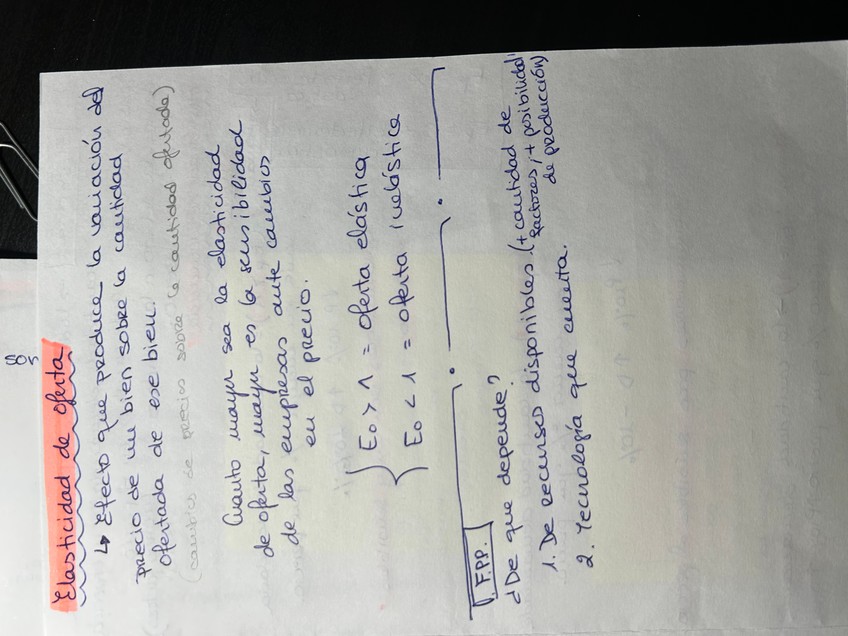 Elasticidad de oferta
↳ Efecto que produce la variación del
precio de un bien sobre la cantidad
ofertada de ese bien.
(cambios de precios sobre la cantidad ofertada)
Cuanto mayor sea la elasticidad
de oferta, mayor es la sensibilidad
de las empresas ante cambios
en el precio.
Eo > 1 = oferta elástica
Eo < 1 = oferta inelástica
F.P.P.
¿De que depende?
1. De recursos disponibles (+ cantidad de
factores, + posibilidad
de producción)
2. Tecnología que cuenta.